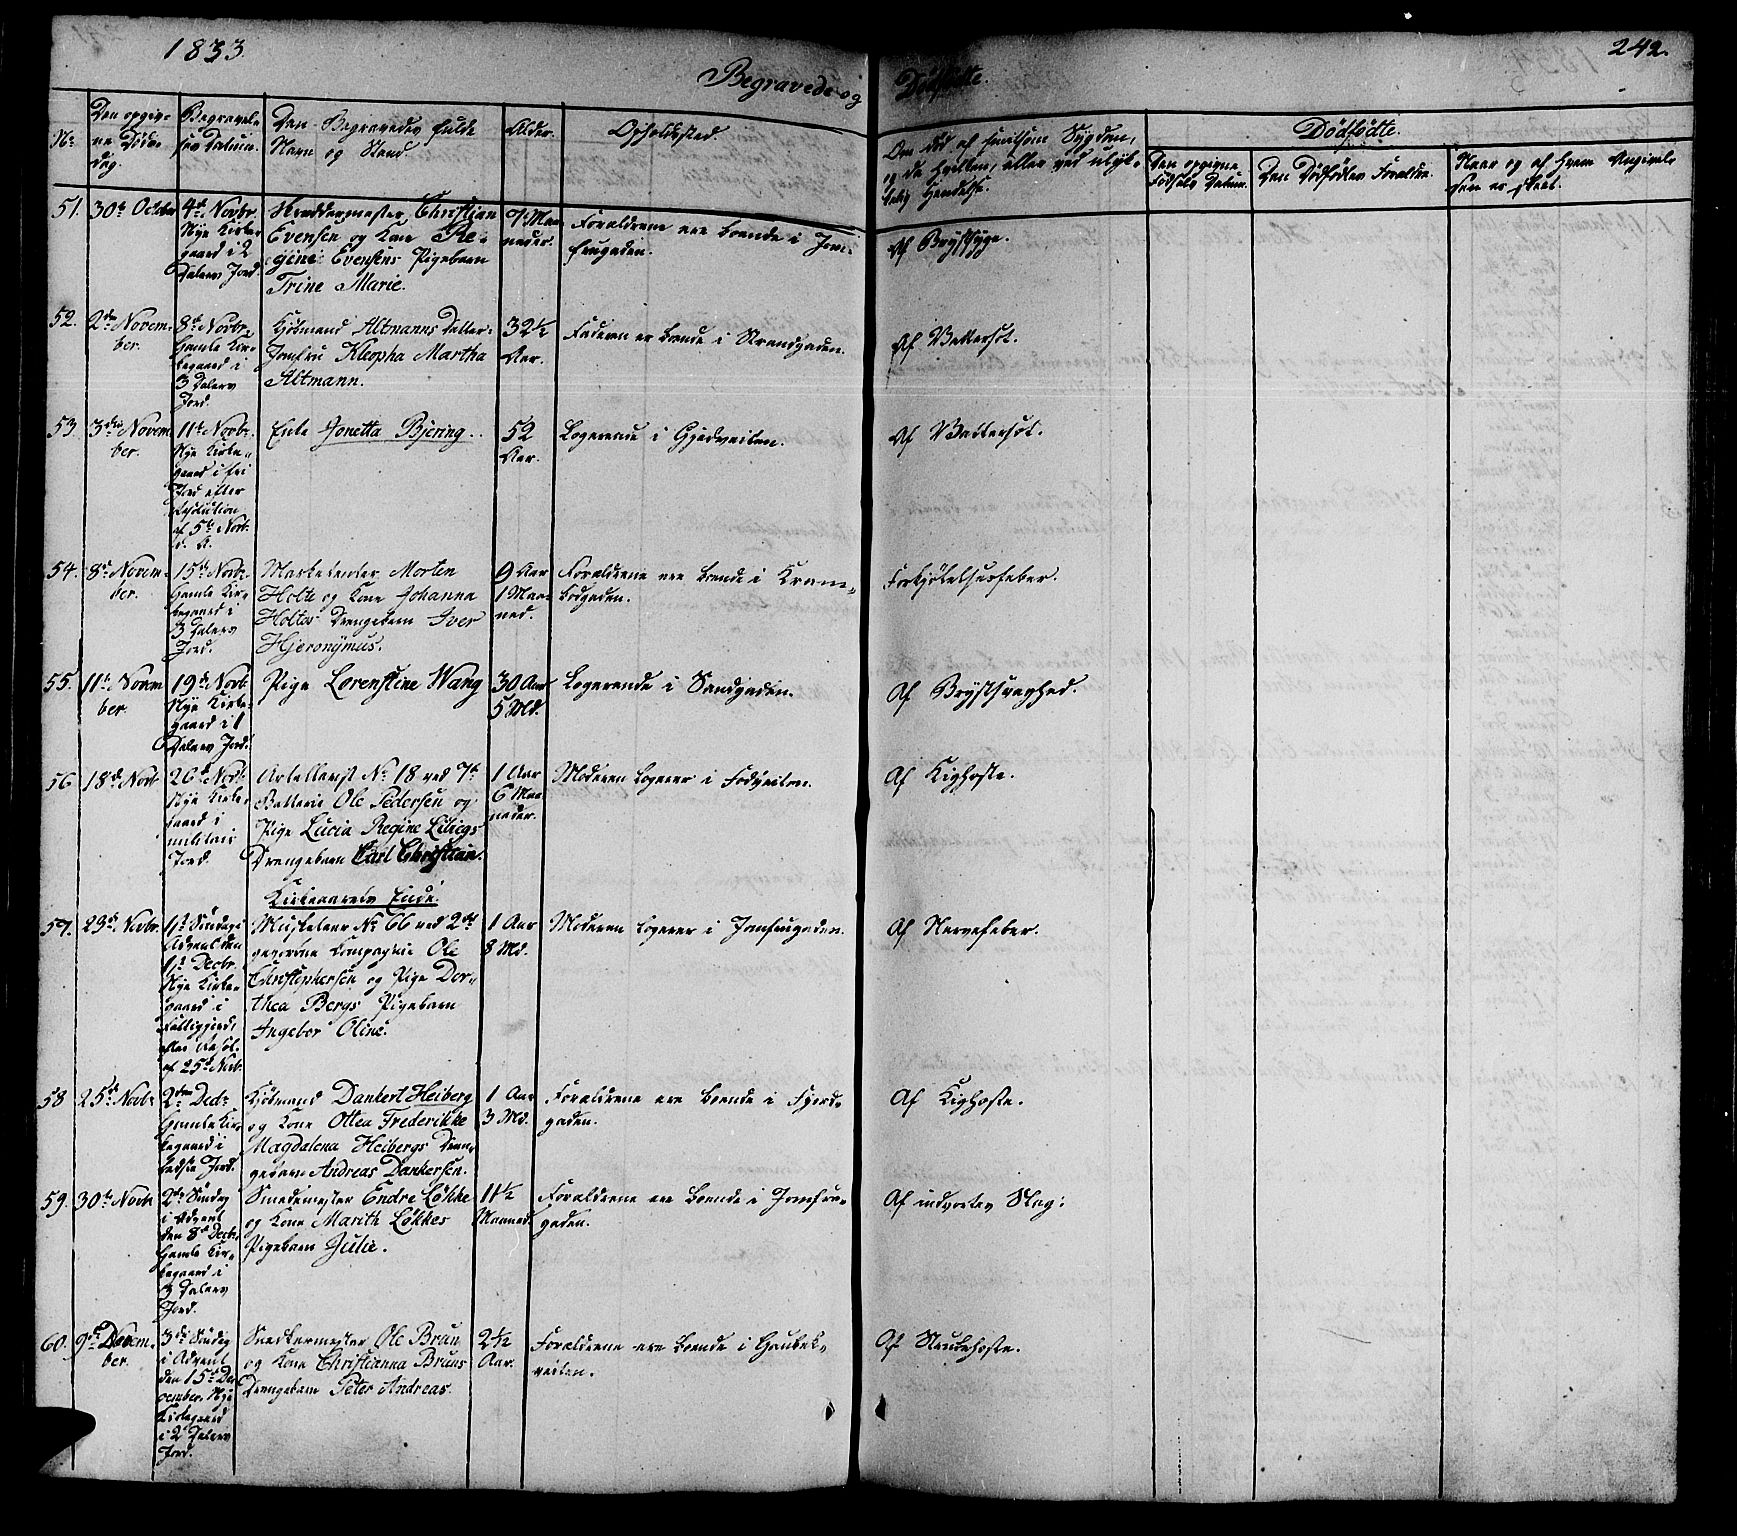 1833.
242.
Begravede og Dødfødte.
No
Den opgiv-
ne Døds-
dag.
Begravel-
ses Datum.
Den Begravedes fulde
Navn og Stand.
Alder.
Opholdssted.
Om død af smitsom Sygdom,
og da hvilken, eller ved ulyk-
kelig Hendelse.
Dødfødte.
Den opgivne
Fødsels Datum.
Den Dødfødtes Forældre.
Naar og af Hvem Angivel-
sen er skeet.
51.
30te October
4de Novbr.
Nye Kirke-
gaard i 2
Dalers Jord.
Skreddermester Christian
Evensen og Kone Re-
gine Evensens Pigebarn
Trine Marie.
7 Maa-
neder.
Forældrene ere boende i Jom-
frugaden.
Af Brystsyge.
52.
2den Novem-
ber.
8de Novbr.
Gamle Kir-
kegaard i
3 Dalers
Jord.
Kjøbmand Altmanns Datter
Jomfru Kleopha Martha
Altmann.
32 1/2
Aar.
Faderen er boende i Strandgaden.
Af Vattersot.
53.
3die Novem-
ber.
11te Novbr.
Nye Kirke-
gaard i fri
Jord efter
Resolution
af 5te Novb.
d. A.
Enke Jonetta Bjering.
52
Aar.
Logerende i Gjedveiten.
Af Vattersot.
54.
8de Novem-
ber.
15de Novb.
Gamle Kir-
kegaard i
3 Dalers
Jord.
Marketenter Morten
Holte og Kone Johanna
Holtes Drengebarn Iver
Hjeronÿmus.
9 Aar
1 Maa-
ned.
Forældrene ere boende i Kram-
bodgaden.
Forkjølelsesfeber.
55.
11te Novem
ber.
19de Novb.
Nye Kirke-
gaard i 1
Dalers Jord.
Pige Lorenstine Wang
30 Aar
5 Md.
Logerende i Sandgaden.
Af Brystsvaghed.
56
18de Novb
26de Novb.
Nye Kirke-
gaard i
militair
Jord.
Artellerist No 18 ved 7de
Batterie Ole Pedersen og
Pige Lucia Regine Liliegs
Drengebarn Carl Christian.
1 Aar
6 Maa-
neder.
Moderen logerer i Fodveiten.
Af Kighoste.
Kirkeaarets Ende.
57.
23de Novbr.
1ste Søndag i
Advent den
1ste Decbr.
Nye Kirke-
gaard i
Fattigjord,
efter Resol.
af 25de Novb.
Musketeer No 66 ved 2det
gevorbne Kompagnie Ole
Christophersen og Pige Dor-
thea Bergs Pigebarn
Ingebor Oline.
1 Aar
8 Md.
Moderen logerer i Jomfrugaden.
Af Nervefeber.
58
25de Novb.
2den Decbr
Gamle Kir-
kegaard i
bedste Jord.
Kjøbmand Dankert Heiberg
og Kone Ottea Frederikke
Magdalena Heibergs Dren-
gebarn Andreas Dankertsen.
1 Aar
3 Md.
Forældrene ere boende i Fjord-
gaden.
Af Kighoste.
59.
30te Novb
2den Søndag
i Advent
den 8de Decbr,
Gamle Kir-
kegaard i
3 Dalers
Jord.
Smedemester Endre Løkke
og Kone Marith Løkkes
Pigebarn Julie.
11 1/2
Maaned.
Forældrene ere boende i Jomfru-
gaden.
Af indvortes Slag.
60.
9de Decem-
ber.
3die Søndag
i Advent
den 15de De-
cember. Nye
Kirkegaard
i 2 Dalers
Jord.
Snedkermester Ole Bruun
og Kone Christianna Bruns
Drengebarn Peter Andreas.
2 1/2
Aar.
Forældrene ere boende i Gaubek-
veiten.
Af Strubehoste.